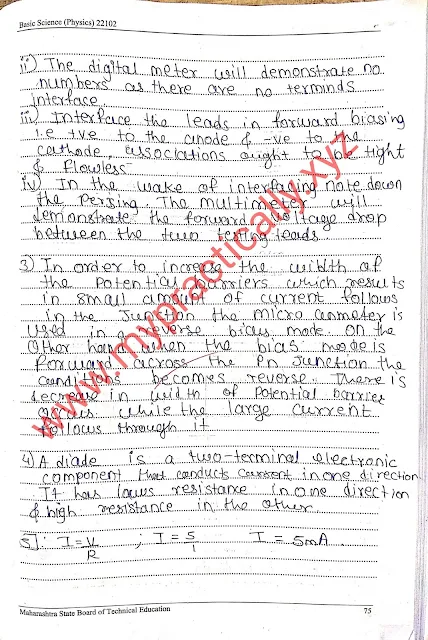 Basic Science (Physics) 22102
ii) The digital meter will demonstrate no
numbers as there are no terminds
interface
iii) Interface the leads in forward biasing
i.e +ve to the anode & -ve to the
cathode, associations ought to be tight
& flowless
iv) In the wake of interfacing note down
the Persing. The multimeter will
demonstrate the forward voltage drop
between the two testing leads
3) In order to increase the width of
the Potential barriers which results
in small amount of current follows
in the Junction the micro ammeter is
used in a reverse bias mode. On the
other hand when the bias mode is
forward across the Pn Junction the
conditions becomes reverse. There is
decrease in width of Potential barrier
occurs while the large current
follows through it
4) A diade is a two-terminal electronic
component that conducts current in one direction
It has lows resistance in one direction
& high resistance in the other.
5] I = V/R ; I = 5/1 I = 5mA
Maharashtra State Board of Technical Education 75
www.mypractically.xyz